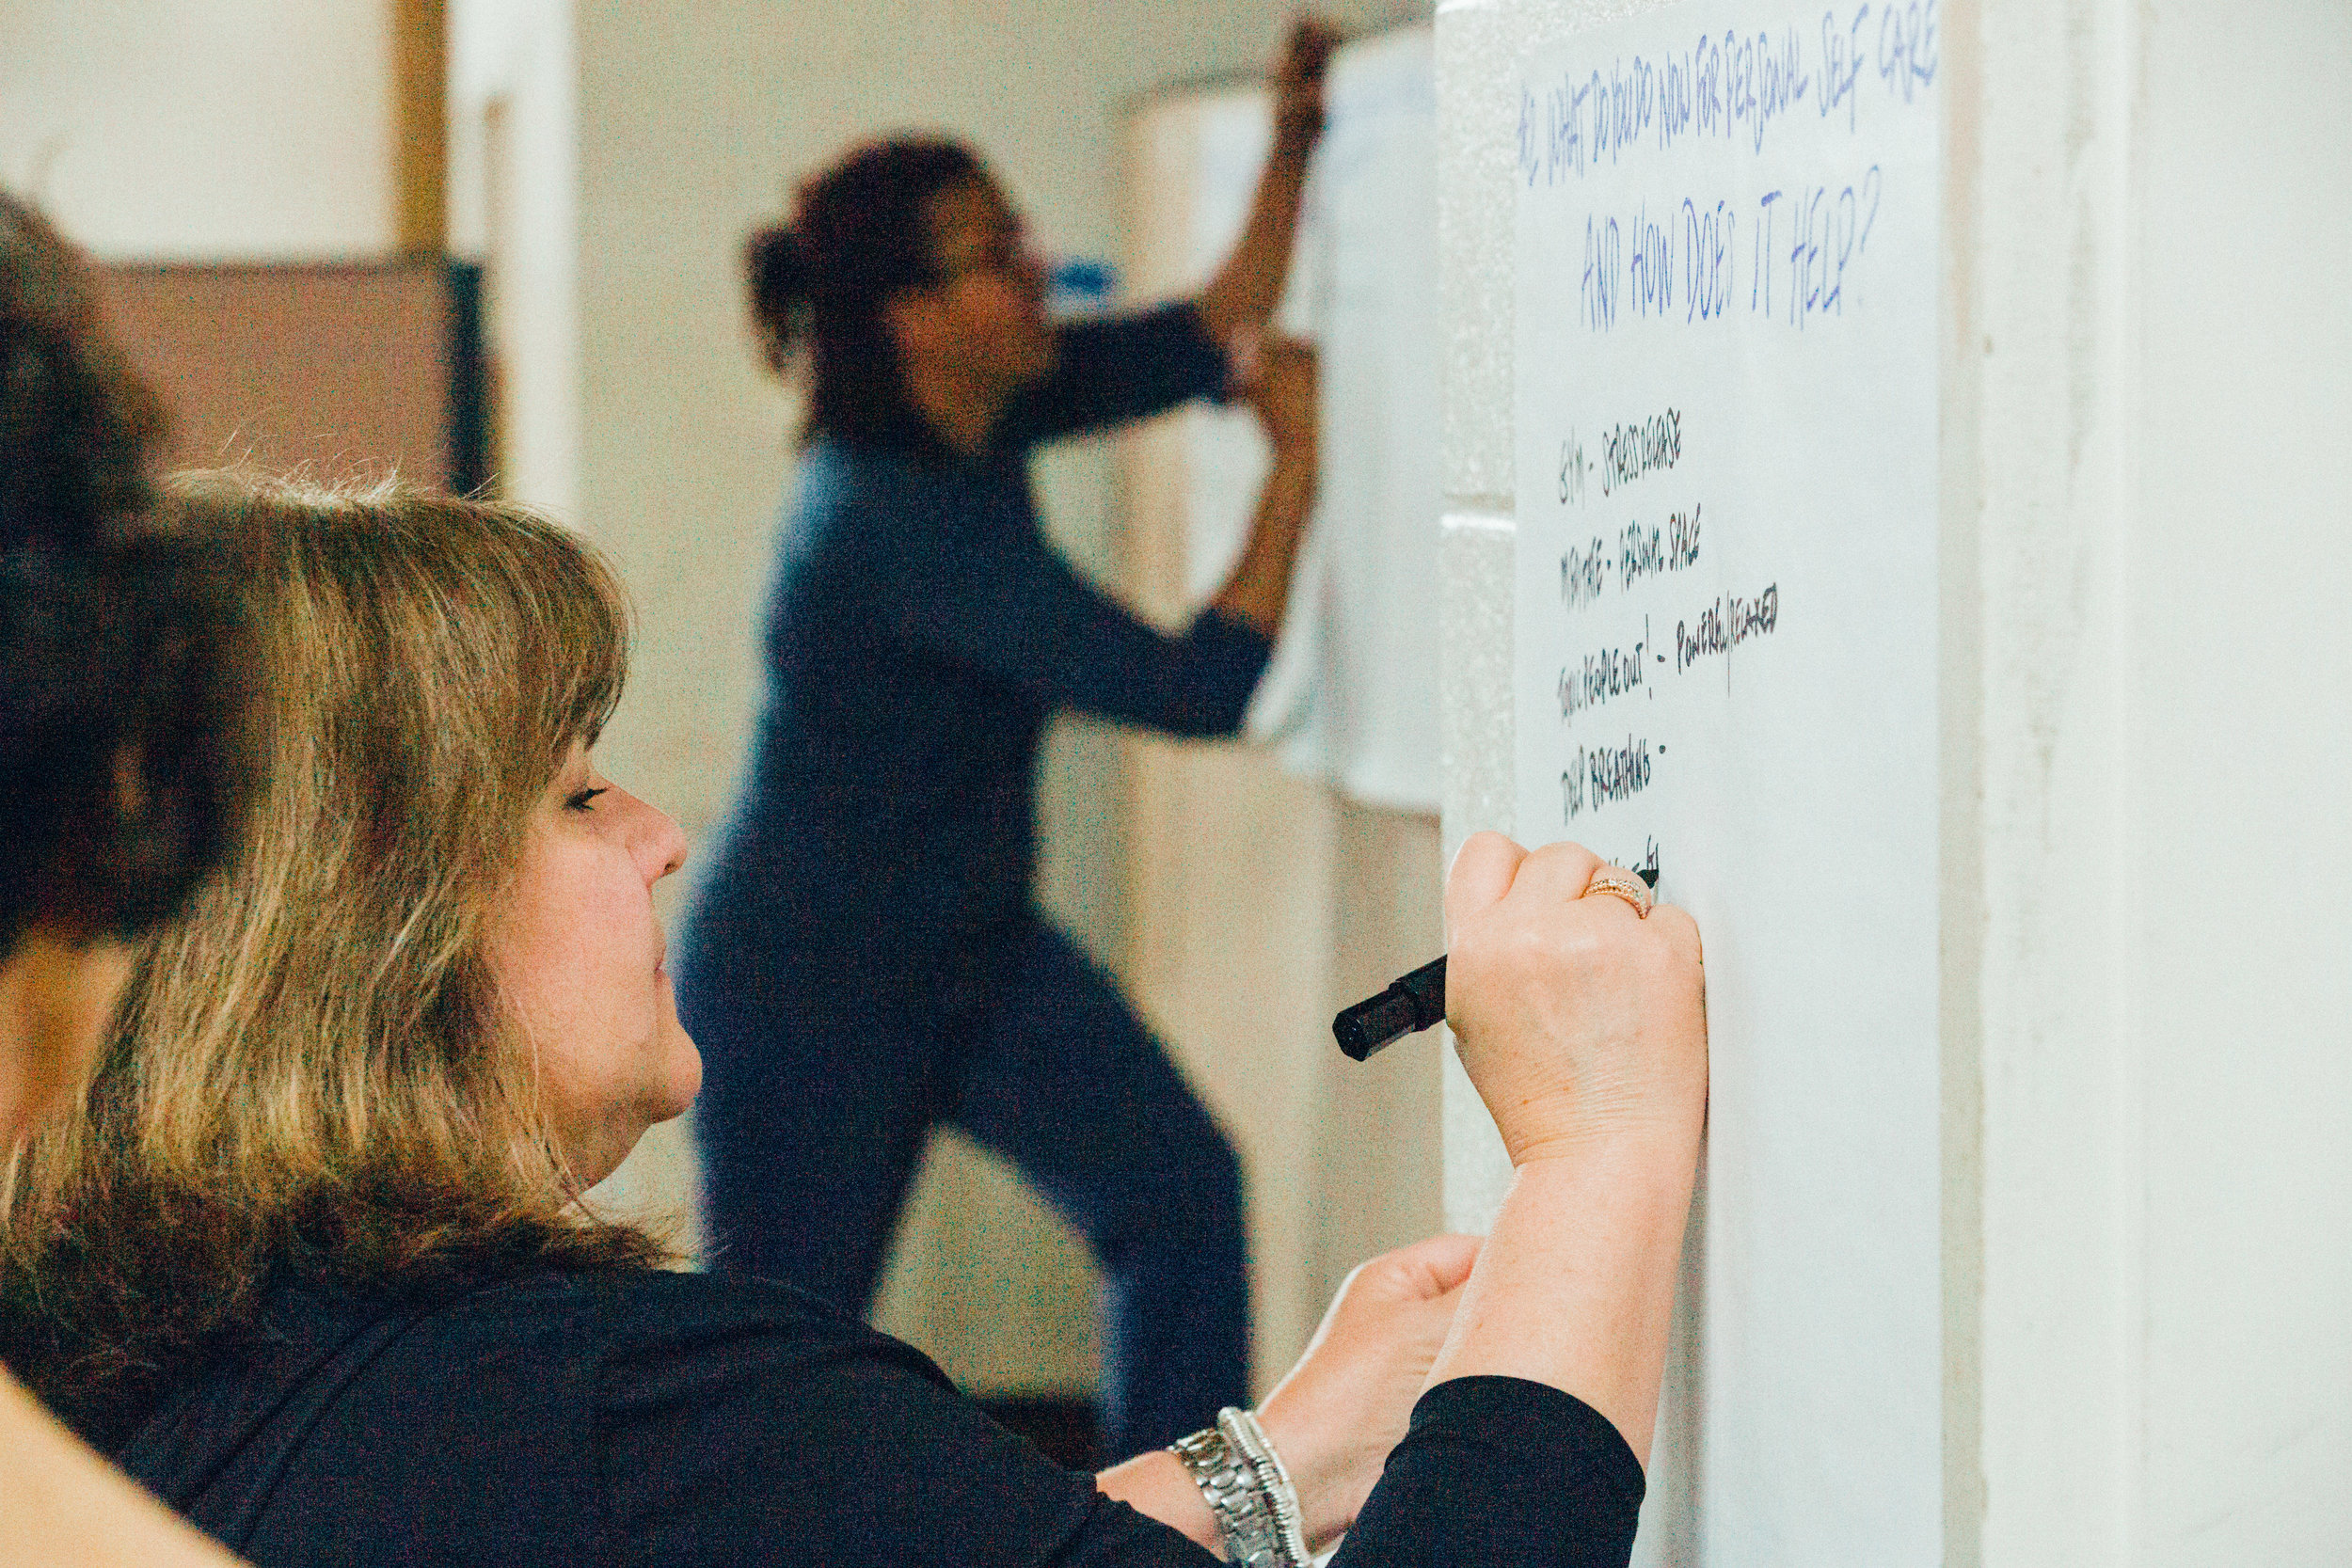 WHAT DO YOU DO NOW FOR PERSONAL SELF CARE
AND HOW DOES IT HELP?
GYM - STRESS RELEASE
MEDITATE - PERSONAL SPACE
TOXIC PEOPLE OUT! - POWERFUL/RELAXED
DEEP BREATHING -